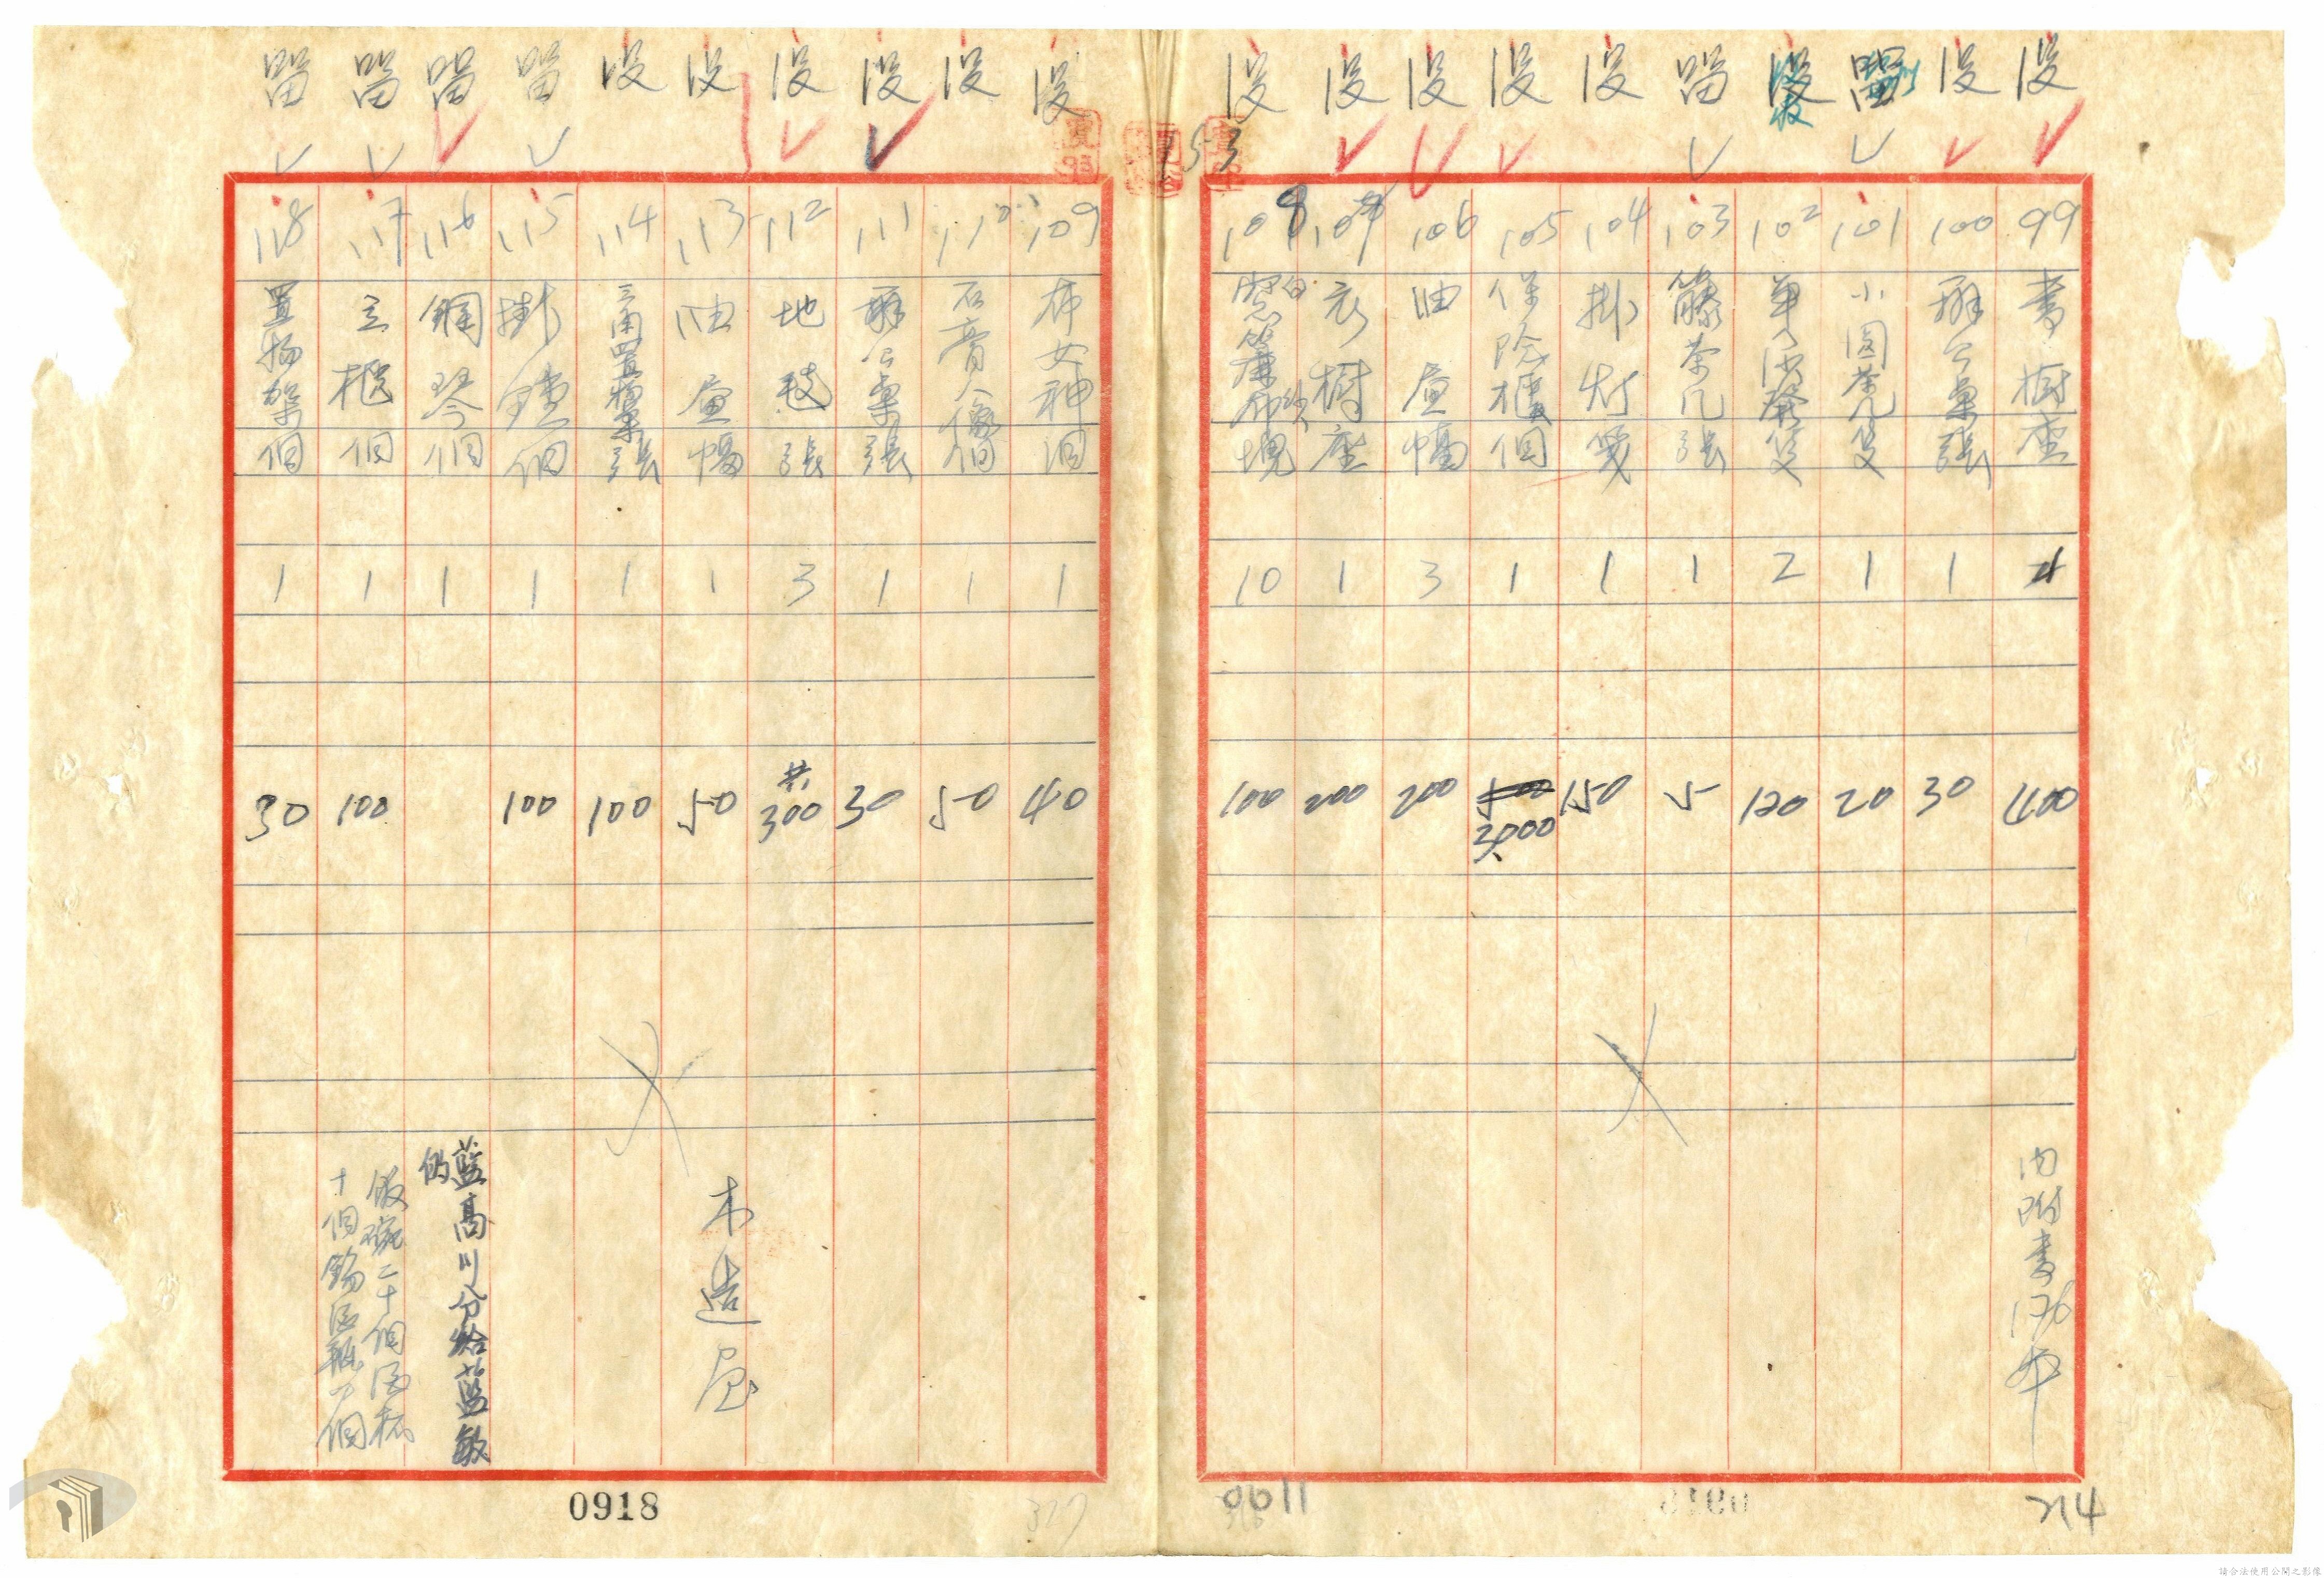 沒 99 書樹座 4 400 內附書176本
沒 100 辦公桌張 1 30
留 101 小圓茶几隻 1 20
沒 102 单人沙發隻 2 120
留 103 籐茶几張 1 5
沒 104 掛灯盞 1 150
沒 105 保险櫃個 1 3000
沒 106 油畫幅 3 200
沒 107 衣樹座 1 200
沒 108 白紗窓簾布塊 10 100
153
沒 109 布女神個 1 40
沒 110 石膏人像個 1 50
沒 111 辦公桌張 1 30
沒 112 地毯張 3 共300
沒 113 油畫幅 1 50 木造屋
沒 114 三角置物架張 1 100
留 115 掛鐘個 1 100
留 116 鋼琴個 1 藍高川分給藍敏的
留 117 立櫃個 1 100 飯碗二十個酒杯十個錫酒瓶一個
留 118 置物架個 1 30
0918
317
0911
214
請合法使用公開之影像